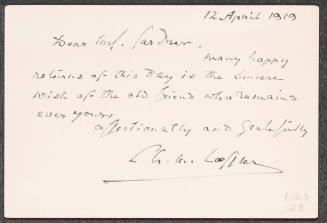 12 April 1919
Dear Mrs. Gardner,
many happy
returns of this Day is the sincere
wish of the old friend who remains
ever yours
affectionately and Gratefully
Ch. M. Loeffler